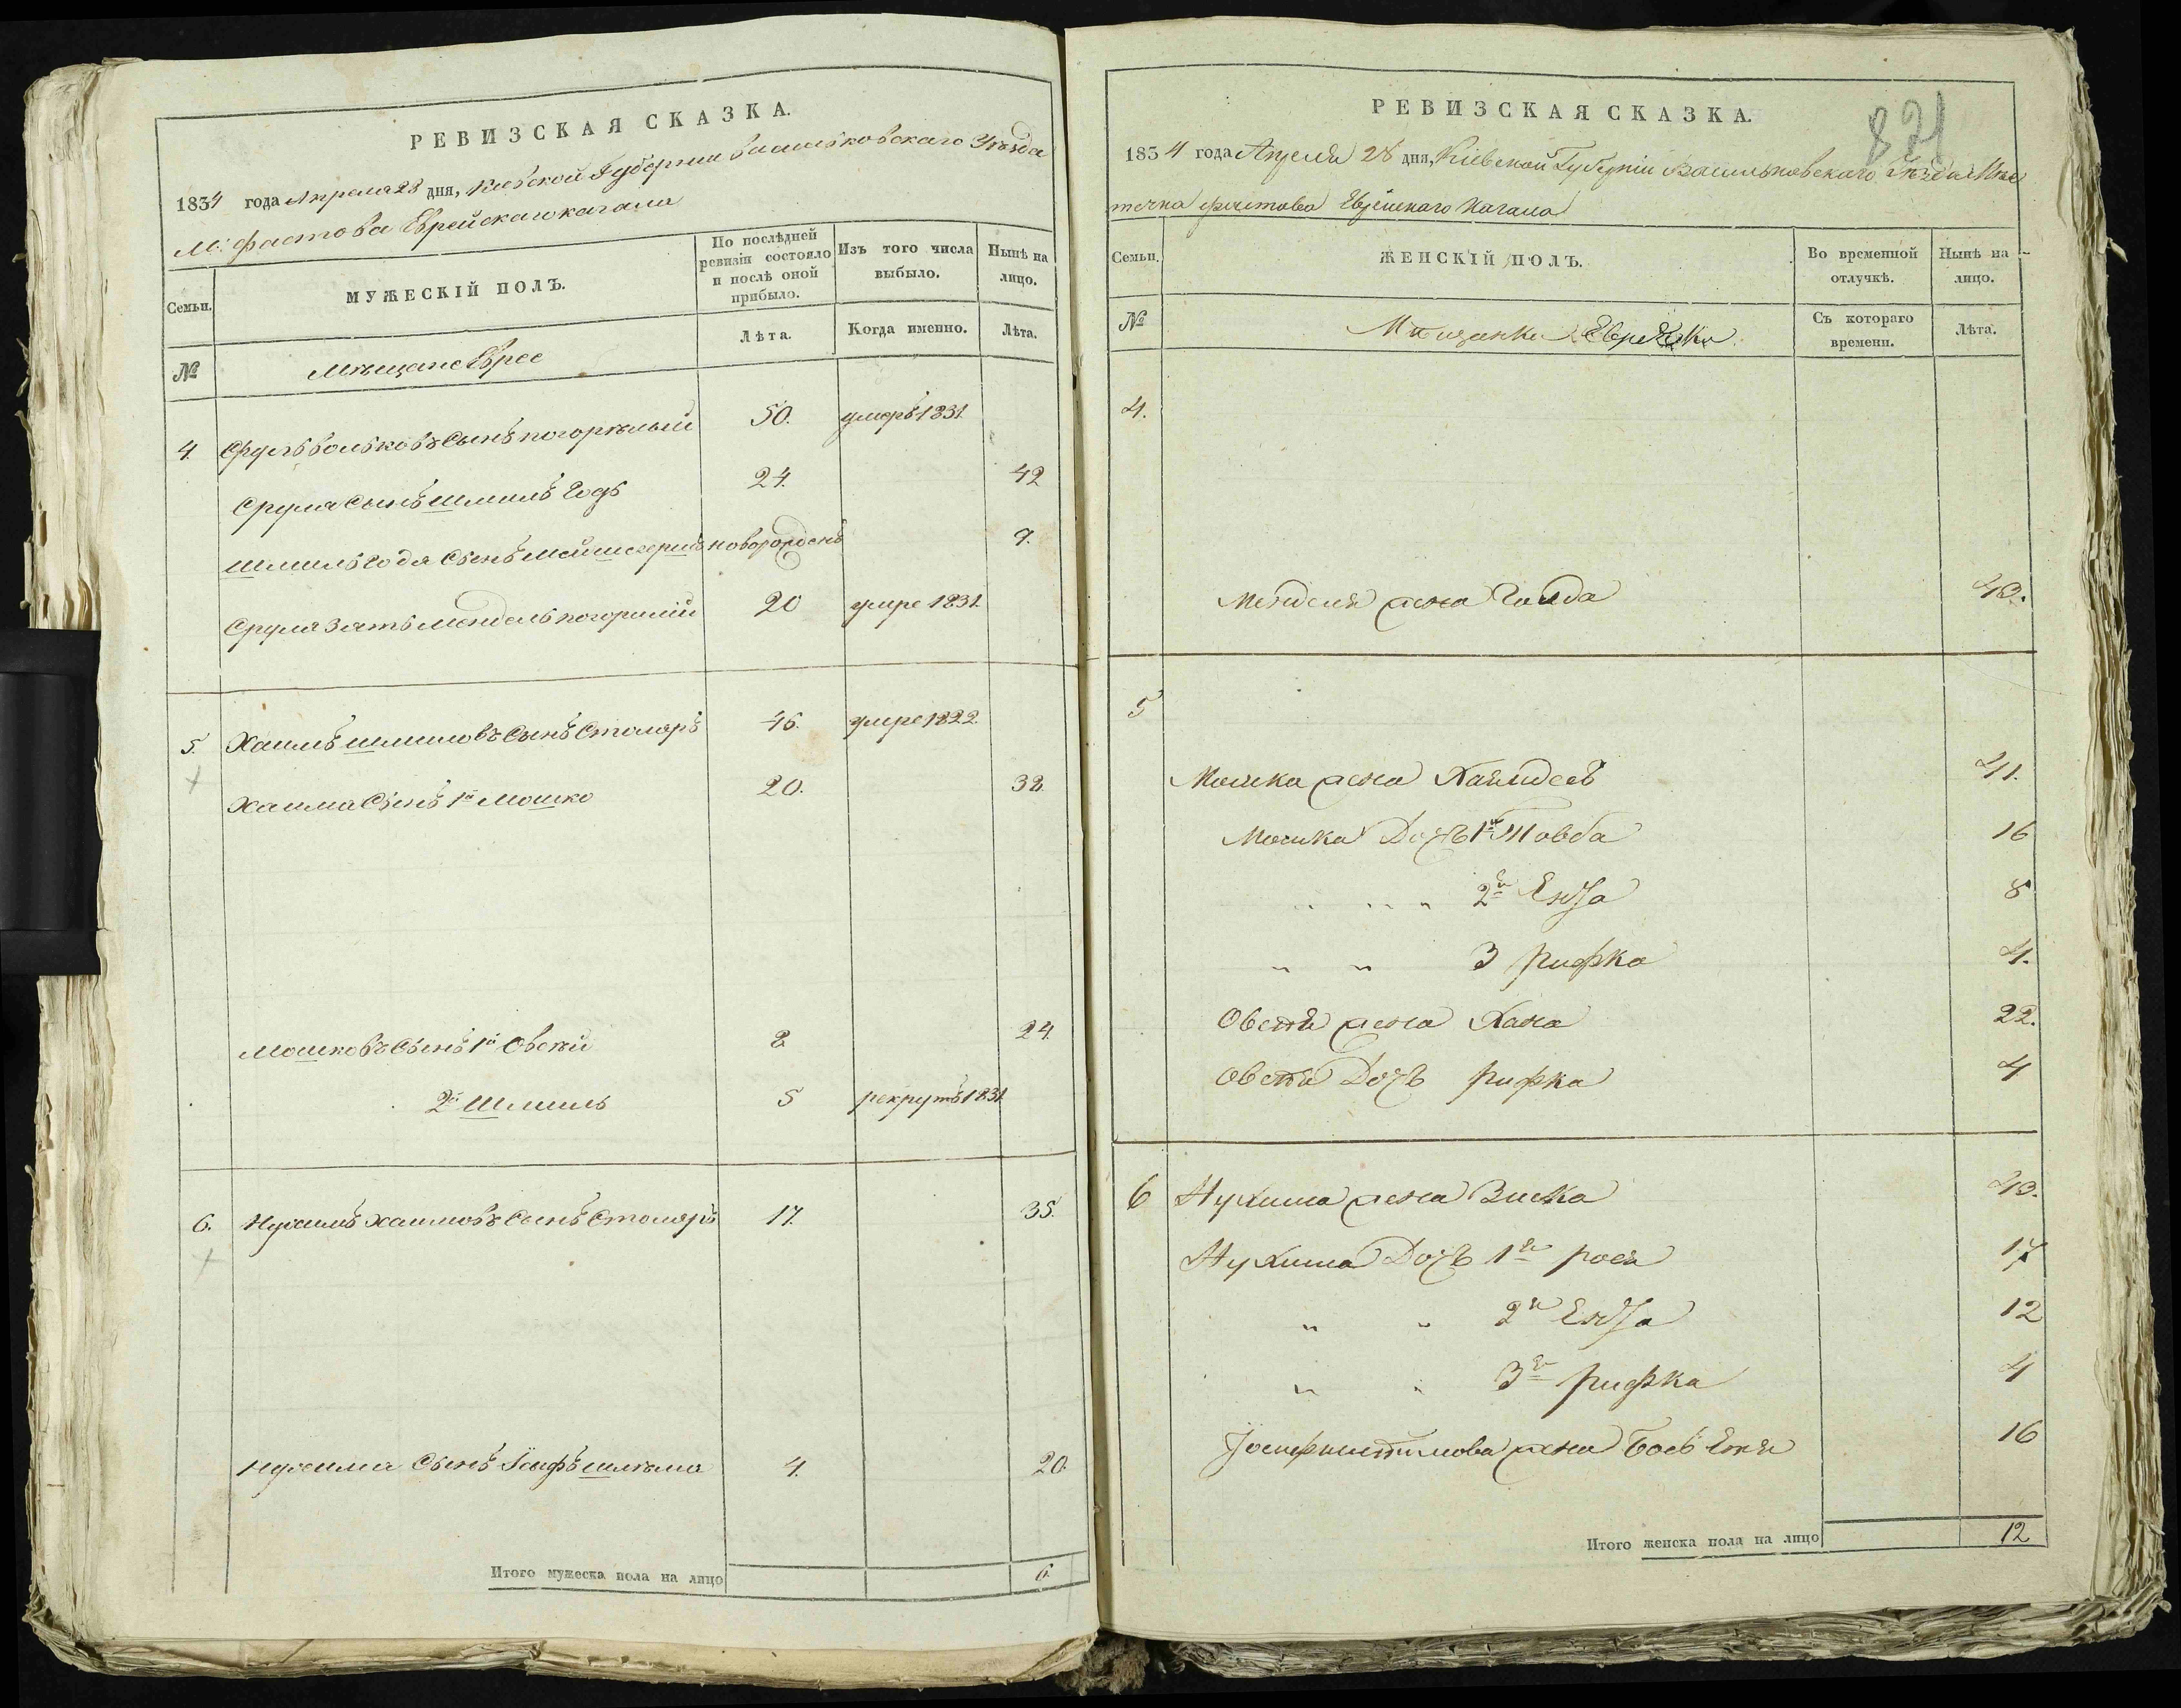 РЕВИЗСКАЯ СКАЗКА.
1834 года Апреля 28 дня, Киевской Губернии Васильковского Уѣзда
М: Фастова Еврейскаго кагала
Семьи.
МУЖЕСКІЙ ПОЛЪ.
По послѣдней ревизіи состояло и послѣ оной прибыло.
Изъ того числа выбыло.
Нынѣ на лицо.
№
Мѣщане Евреє
Лѣта.
Когда именно.
Лѣта.
4. Сруль Вольковъ Сынъ погорѣлый 50. умеръ 1831
Сруля Сынъ Шмиль 24. 42
Шмиль Сынъ новорожденъ 9.
Сруля Зять Мендель погорилій 20 умре 1831
5. Хаимъ Шмиловъ Сынъ Столяръ 46. умре 1822.
Хаима Сынъ 1й Мошко 20. 38
Мошковъ Сынъ 1й Овсѣй 8 24.
2й Шмиль 5 рекрутъ 1831
6. Нухимъ Хаимовъ Сынъ Столяръ 17. 35.
Нухима Сынъ Іосифъ Шлема 4. 20.
Итого мужеска пола на лицо 6.
821
РЕВИЗСКАЯ СКАЗКА.
1834 года Апреля 28 дня, Кіевской Губерніи Васильковскаго Уѣзда Мѣс
течка Фастова Еврейскаго Кагала
Семьи.
ЖЕНСКІЙ ПОЛЪ.
Во временной отлучкѣ.
Нынѣ на лицо.
№
Мѣщанки Еврейки
Съ котораго времени.
Лѣта.
4.
Менделя жена Голда 40.
5
Мошка жена 41.
Мошка Дочь 1я Товба 16
" " " 2я Ента 8
" " 3 Рифка 4.
Овсея жена Хана 22.
Овсея Дочь Рифка 4
6 Нухима жена Виска 40.
Нухима Дочь 1я 17
" " 2я Ента 12
" " 3я Рифка 4
жена 16
Итого женска пола на лицо 12